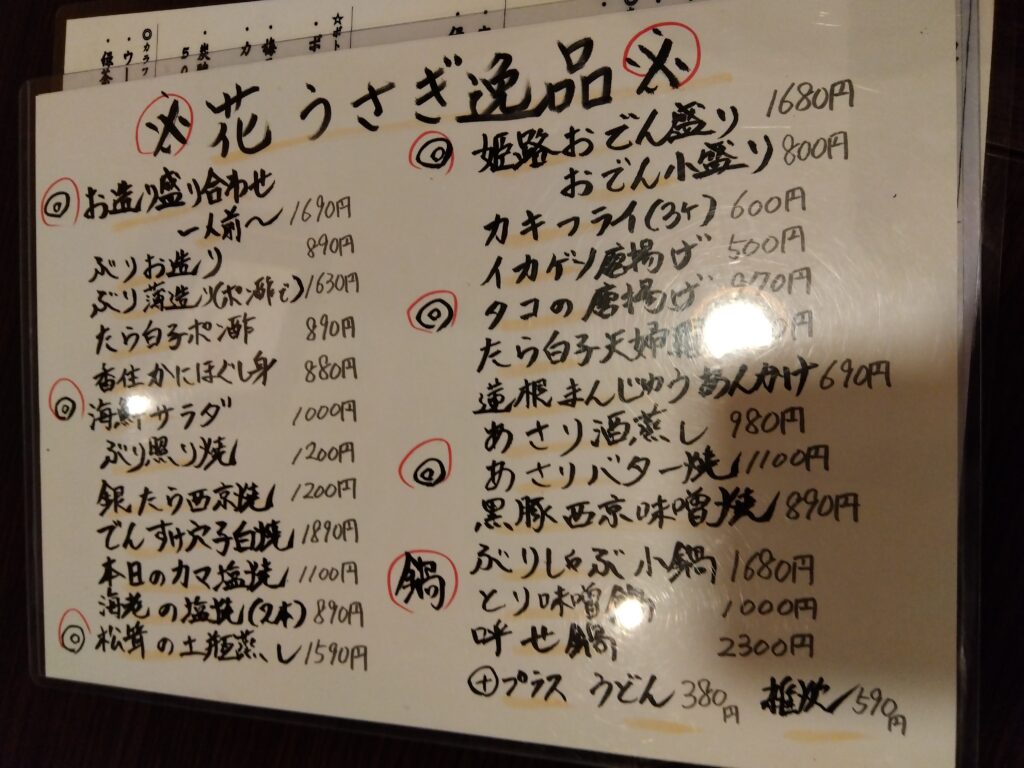 ※花うさぎ逸品※
◎お造り盛り合わせ
一人前〜1690円
ぶりお造り 890円
ぶり薄造り(ポン酢で)1630円
たら白子ポン酢 890円
香住かにほぐし身 880円
◎海鮮サラダ 1000円
ぶり照り焼 1200円
銀たら西京焼 1200円
でんすけ穴子白焼 1890円
本日のカマ塩焼 1100円
海老の塩焼(2本)890円
◎松茸の土瓶蒸し 1590円
◎姫路おでん盛り 1680円
おでん小盛り 800円
カキフライ(3ケ) 600円
イカゲソ唐揚げ 500円
◎タコの唐揚げ 870円
たら白子天婦羅
蓮根まんじゅうあんかけ 690円
あさり酒蒸し 980円
◎あさりバター焼 1100円
黒豚西京味噌焼 890円
鍋 ぶりしゃぶ小鍋 1680円
とり味噌鍋 1000円
呼せ鍋 2300円
⊕プラス うどん 380円 雑炊 590円
☆ボト
・ボ
・梅
・カ
・炭酸
50
◎カラフ
・ウー
・緑茶